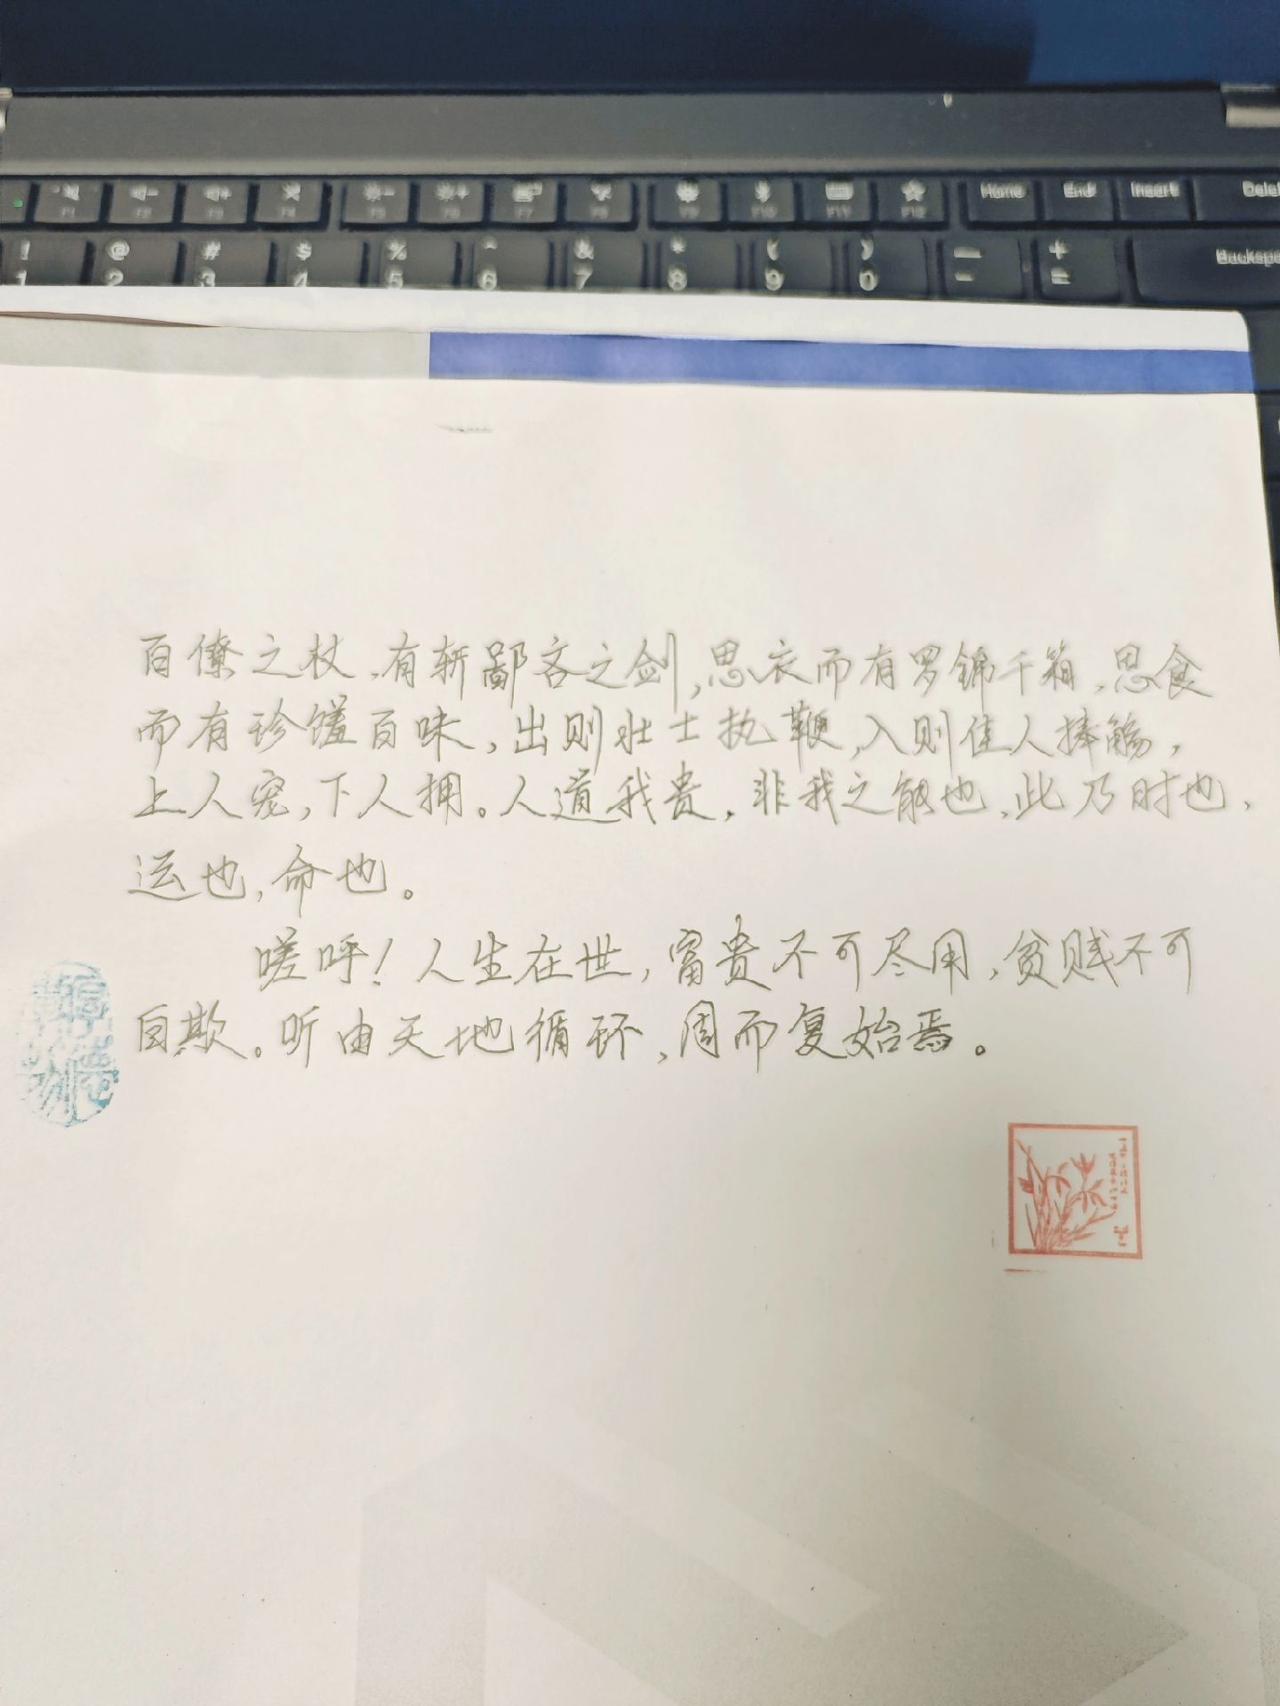 Home End Insert
! @ # $ % ^ & * ( ) — +
1 2 3 4 5 6 7 8 9 0 - =
百僚之杖,有斩鄙吝之剑,思衣而有罗锦千箱,思食
而有珍馐百味,出则壮士执鞭,入则佳人捧觞,
上人宠,下人拥。人道我贵,非我之能也,此乃时也,
运也,命也。
嗟呼!人生在世,富贵不可尽用,贫贱不可
自欺。听由天地循环,周而复始焉。
厚德载物